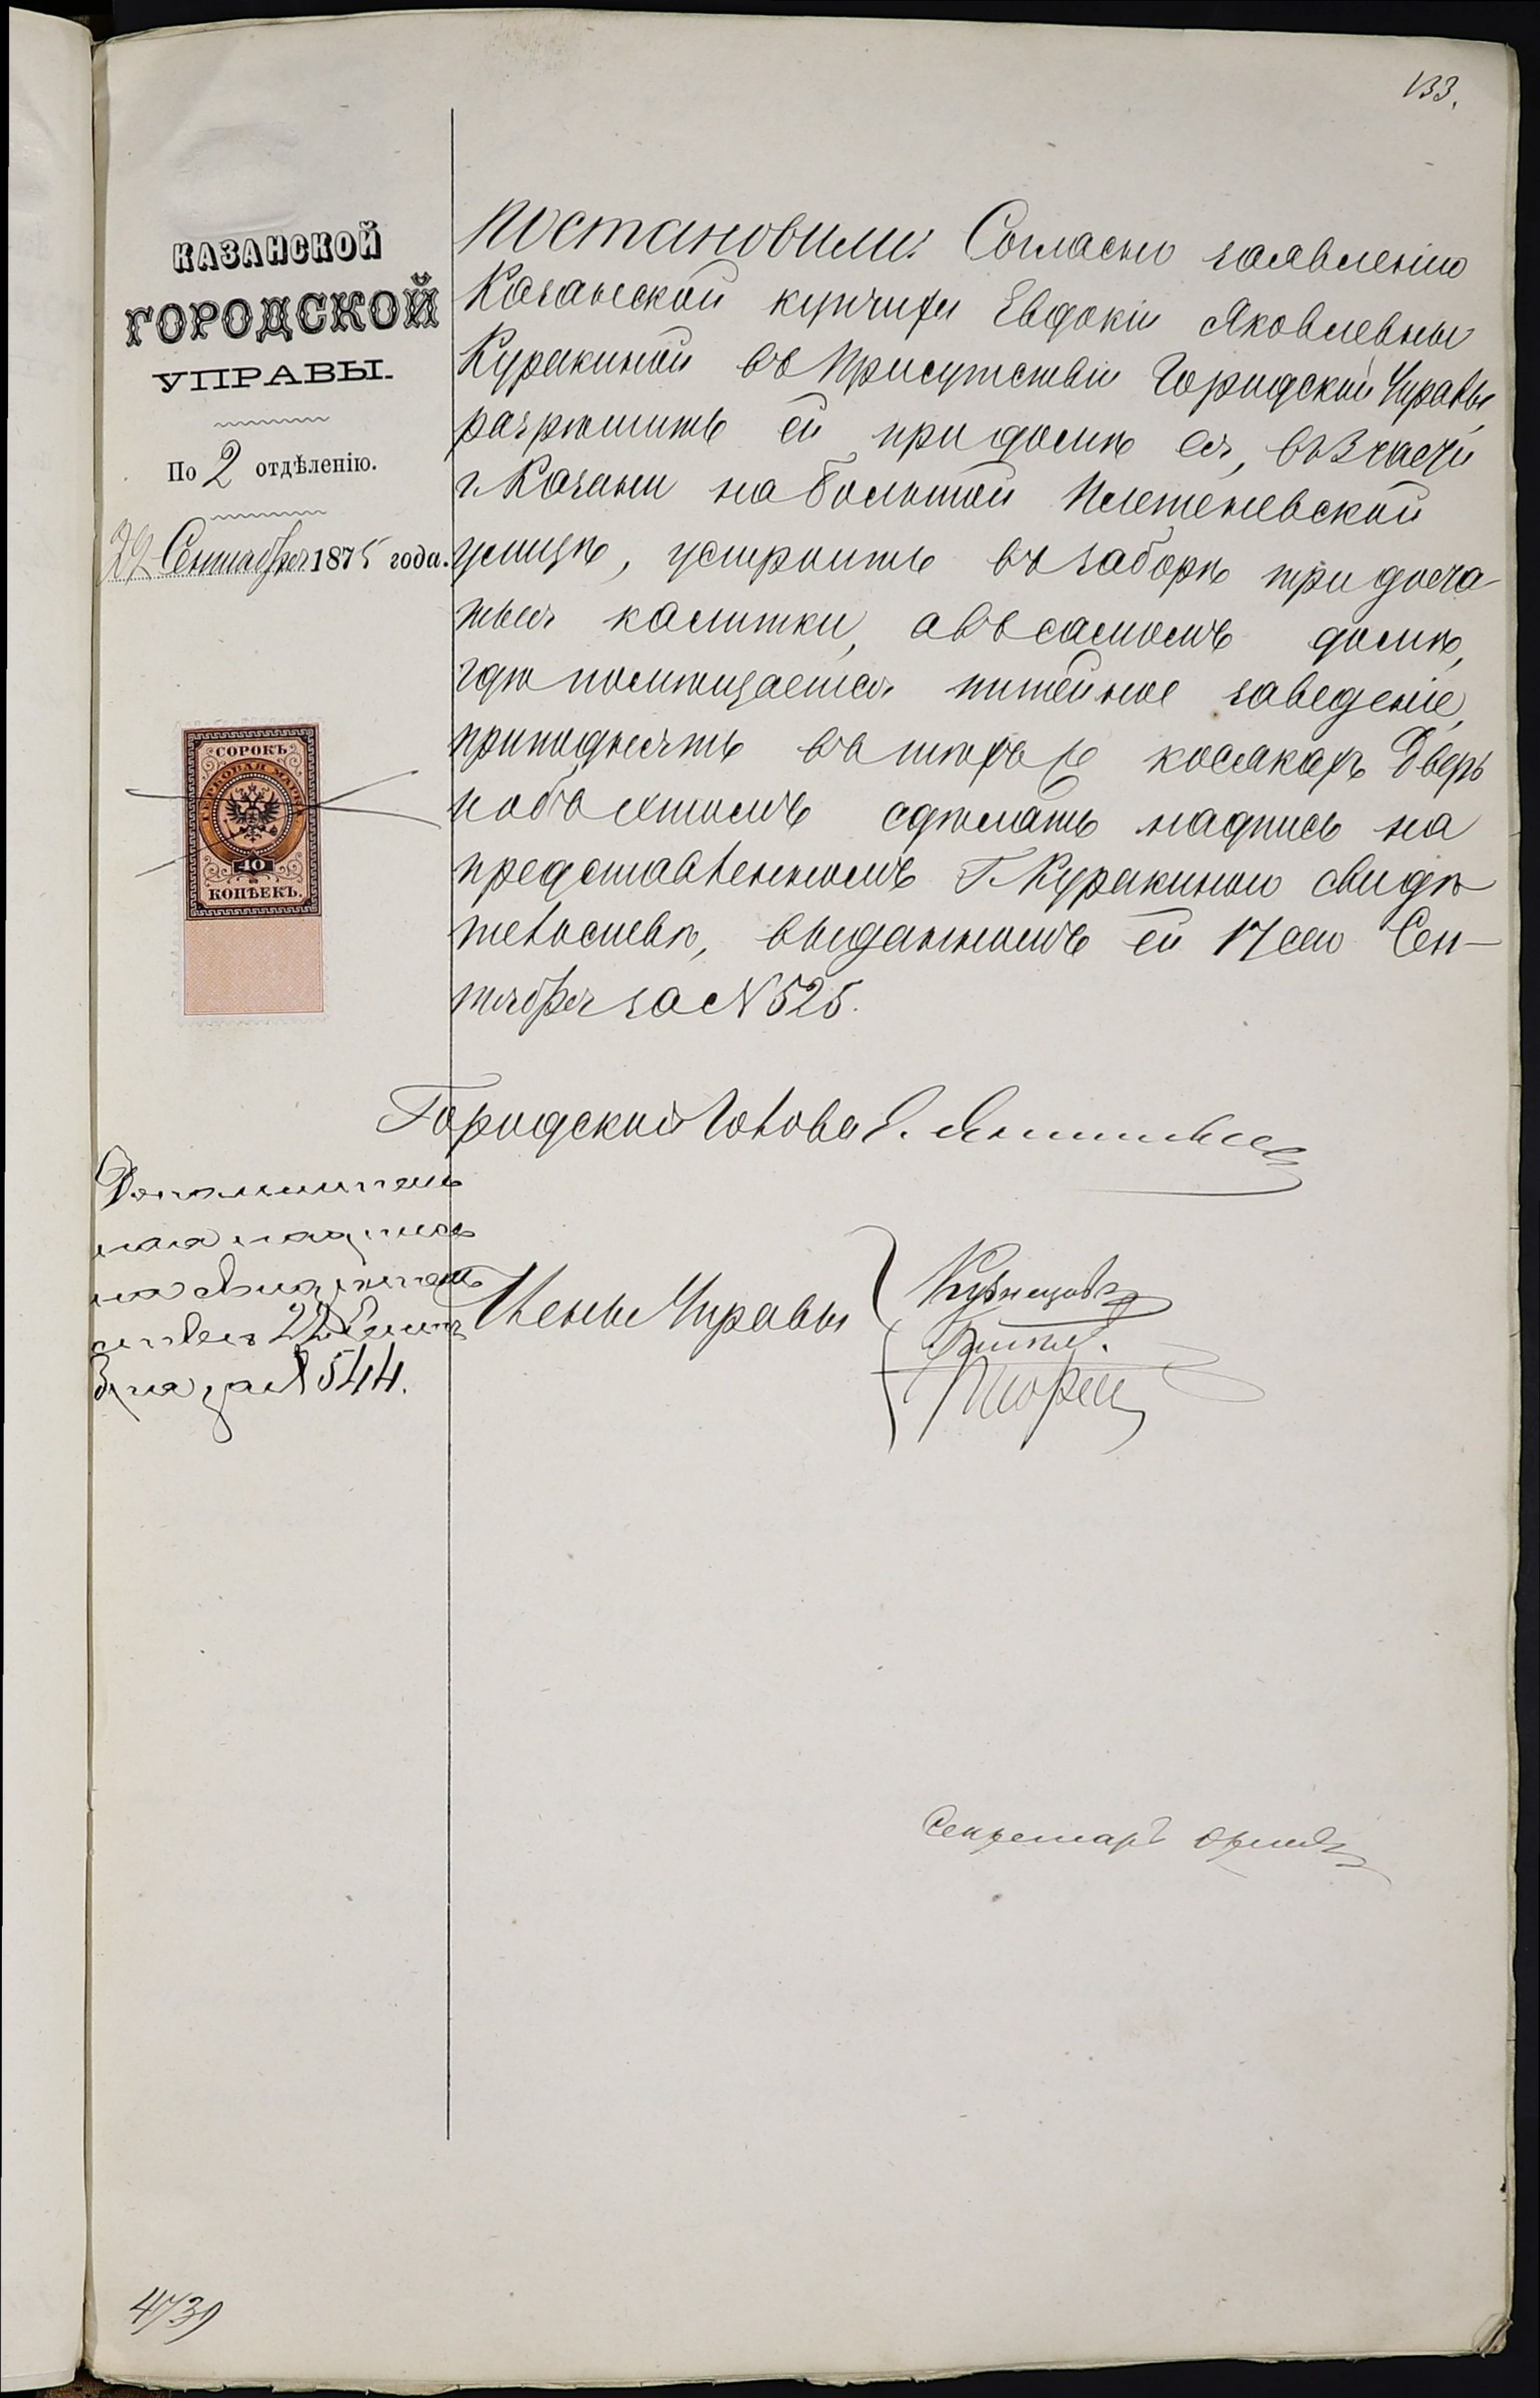 133.
КАЗАНСКОЙ
ГОРОДСКОЙ
УПРАВЫ.
По 2 отдѣленію.
22 Сентября 1875 года.
СОРОКЪ
ГЕРБОВАЯ МАРКА
40
КОПѢЕКЪ.
Постановили: Согласно заявленію
Казанской купчихи Евдокіи Яковлевны
Куракиной въ Присутствіи Городской Управы,
разрѣшить ей при домѣ ея, въ 3 части
г. Казани на Большой Плетеневской
улицѣ, устроить въ заборѣ три доща-
тыя калитки, а въ самомъ домѣ,
гдѣ помѣщается питейное заведеніе,
приподнять въ тѣхъ же косякахъ Дверь
и объ этомъ сдѣлать надпись на
представленномъ Г. Куракиною свидѣ-
тельствѣ, выданномъ ей 17 сего Сен-
тября за № 525.
Городской Голова Э. Янишевскій
Дополнитель
ная надпись
на свидѣтель
ствѣ 22 Сентя
бря за № 544.
Члены Управы
Кузнецовъ
Секретарь
4739